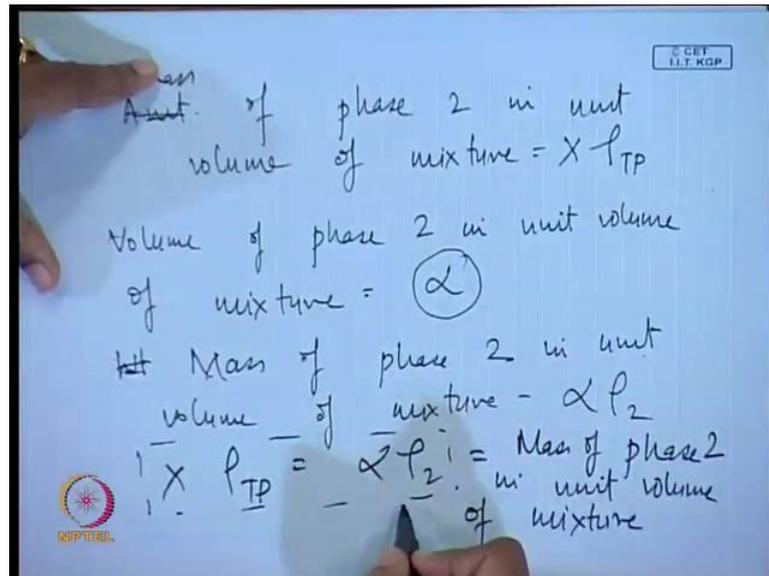 © CET
I.I.T. KGP
Amt. of phase 2 in unit
volume of mixture = x ρTP
Volume of phase 2 in unit volume
of mixture = α
Mass of phase 2 in unit
volume of mixture - αρ2
x ρTP = αρ2 = Mass of phase 2
in unit volume
of mixture
NPTEL